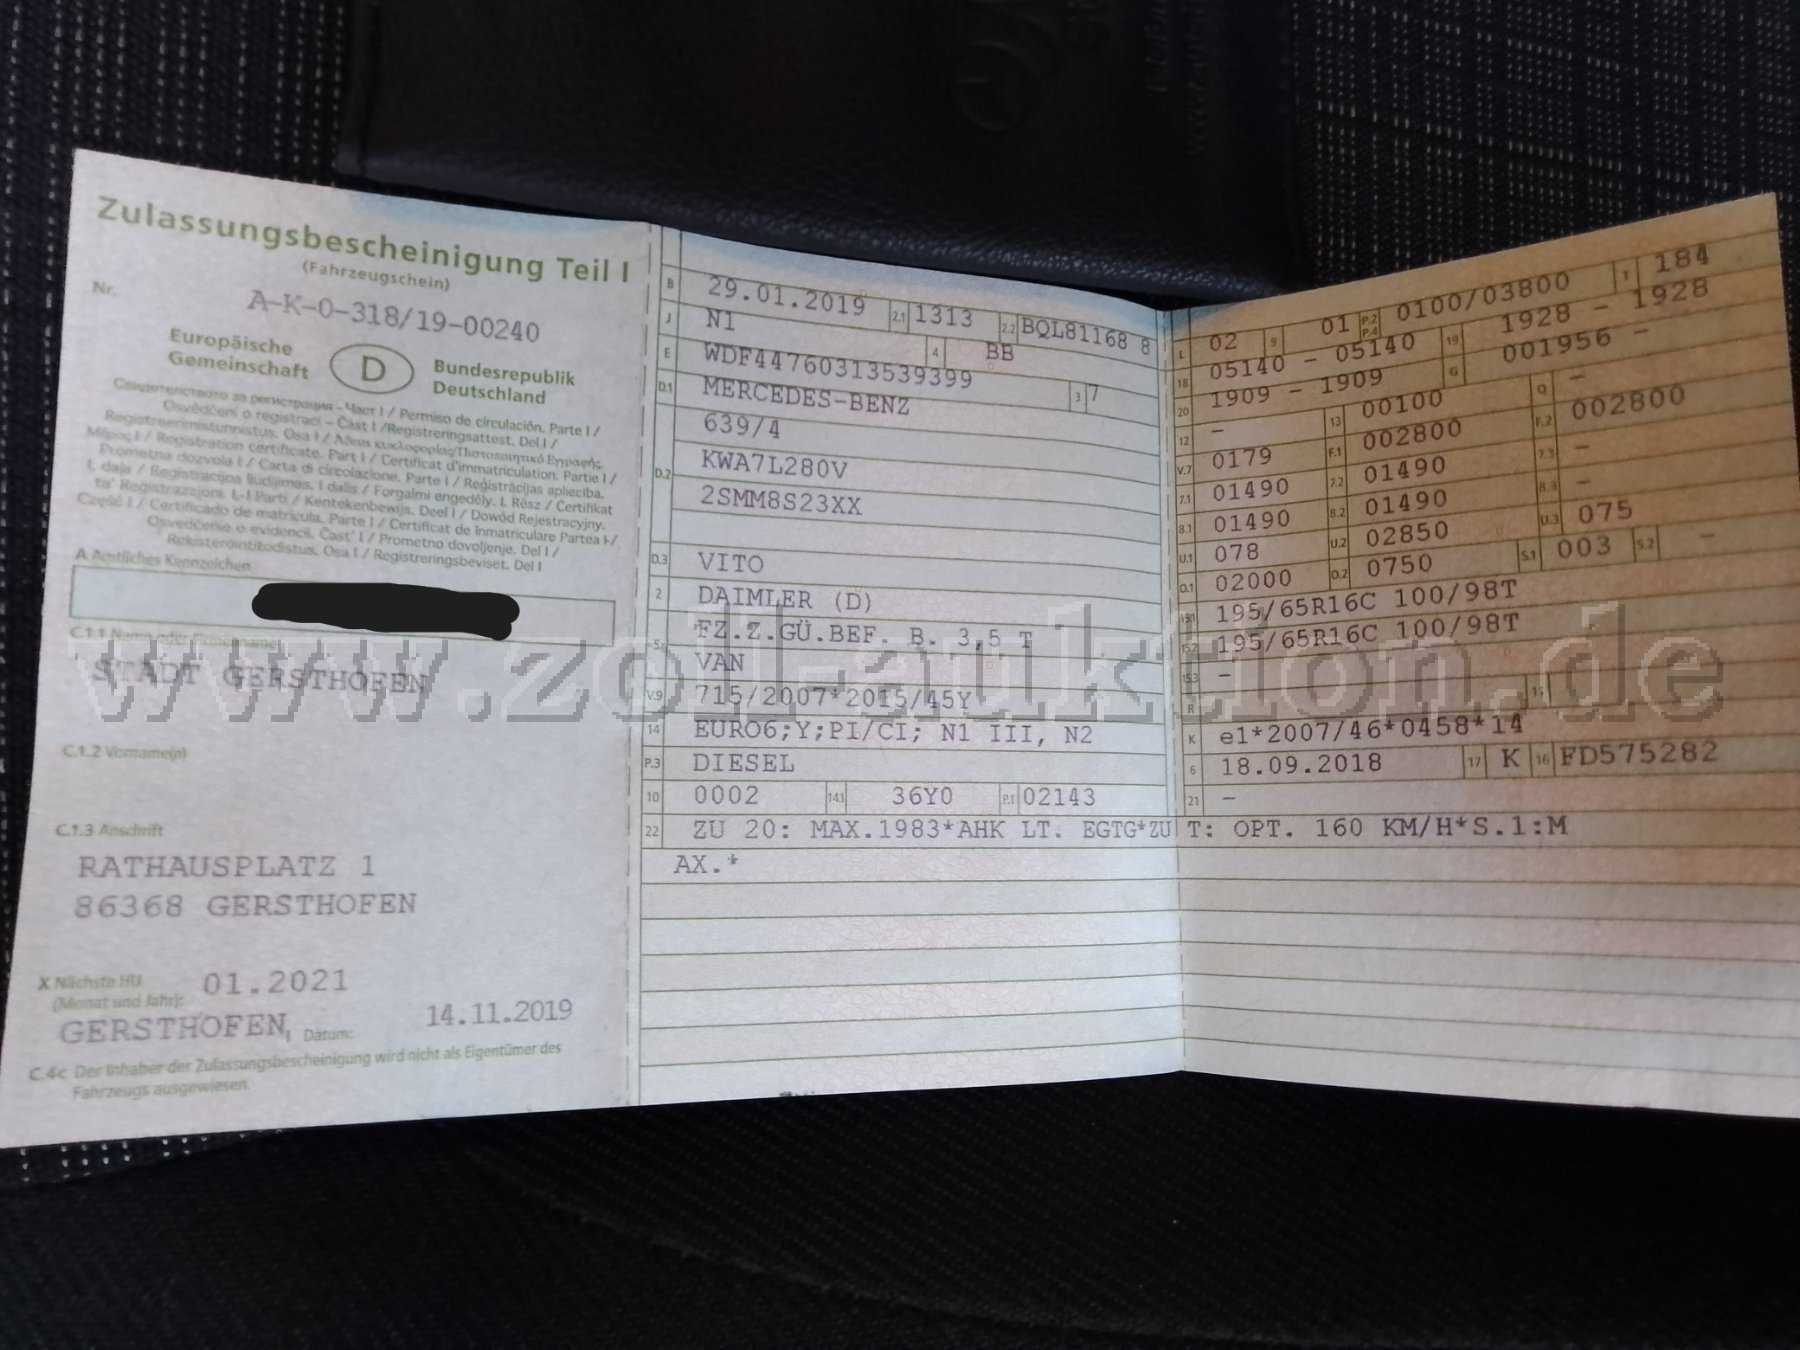 Zulassungsbescheinigung Teil I
(Fahrzeugschein)
Nr. A-K-0-318/19-00240
Europäische Gemeinschaft D Bundesrepublik Deutschland
Свидетелство за регистрация – Част I / Permiso de circulación. Parte I /
Osvědčení o registraci – Část I / Registreringsattest. Del I /
Registreerimistunnistus. Osa I / Άδεια κυκλοφορίας/Πιστοποιητικό Εγγραφής.
Μέρος I / Registration certificate. Part I / Certificat d'immatriculation. Partie I /
Prometna dozvola I / Carta di circolazione. Parte I / Reģistrācijas apliecība.
I. daļa / Registracijos liudijimas. I dalis / Forgalmi engedély. I. Rész / Ċertifikat
ta' Reġistrazzjoni. L-I Parti / Kentekenbewijs. Deel I / Dowód Rejestracyjny.
Część I / Certificado de matrícula. Parte I / Certificat de înmatriculare Partea I /
Osvedčenie o evidencii. Časť I / Prometno dovoljenje. Del I /
Rekisteröintitodistus. Osa I / Registreringsbeviset. Del I
A Amtliches Kennzeichen
C.1.1 Name oder Firmenname
STADT GERSTHOFEN
C.1.2 Vorname(n)
C.1.3 Anschrift
RATHAUSPLATZ 1
86368 GERSTHOFEN
X Nächste HU 01.2021
(Monat und Jahr):
GERSTHOFEN, Datum: 14.11.2019
C.4c Der Inhaber der Zulassungsbescheinigung wird nicht als Eigentümer des
Fahrzeugs ausgewiesen.
B 29.01.2019 2.1 1313 2.2 BQL81168 8
J N1 4 BB
E WDF44760313539399 3 7
D.1 MERCEDES-BENZ
639/4
D.2 KWA7L280V
2SMM8S23XX
D.3 VITO
2 DAIMLER (D)
5 FZ.Z.GÜ.BEF. B. 3,5 T
VAN
V.9 715/2007*2015/45Y
14 EURO6;Y;PI/CI; N1 III, N2
P.3 DIESEL
10 0002 14.1 36Y0 P.1 02143
22 ZU 20: MAX.1983*AHK LT. EGTG*ZU T: OPT. 160 KM/H*S.1:M
AX.*
L 02 9 01 P.2 P.4 0100/03800 T 184
18 05140 - 05140 19 1928 - 1928
20 1909 - 1909 G 001956 -
12 - 13 00100 Q -
V.7 0179 F.1 002800 F.2 002800
7.1 01490 7.2 01490 7.3 -
8.1 01490 8.2 01490 8.3 -
U.1 078 U.2 02850 U.3 075
O.1 02000 O.2 0750 S.1 003 S.2 -
15.1 195/65R16C 100/98T
15.2 195/65R16C 100/98T
15.3 -
R 11
K e1*2007/46*0458*14
6 18.09.2018 17 K 16 FD575282
21 -
www.zoll-auktion.de